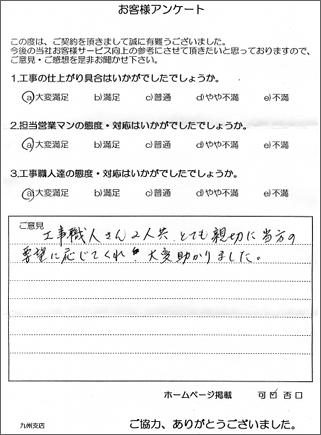 お客様アンケート
この度は、ご契約を頂きまして誠に有難うございました。
今後の当社お客様サービス向上の参考にさせて頂きたいと思っておりますので、
ご意見・ご感想を是非お聞かせ下さい。
1.工事の仕上がり具合はいかがでしたでしょうか。
a)大変満足 b)満足 c)普通 d)やや不満 e)不満
2.担当営業マンの態度・対応はいかがでしたでしょうか。
a)大変満足 b)満足 c)普通 d)やや不満 e)不満
3.工事職人達の態度・対応はいかがでしたでしょうか。
a)大変満足 b)満足 c)普通 d)やや不満 e)不満
ご意見
工事職人さん2人共、とても親切に当方の
要望に応じてくれ 大変助かりました。
ホームページ掲載 可 否
九州支店 ご協力、ありがとうございました。